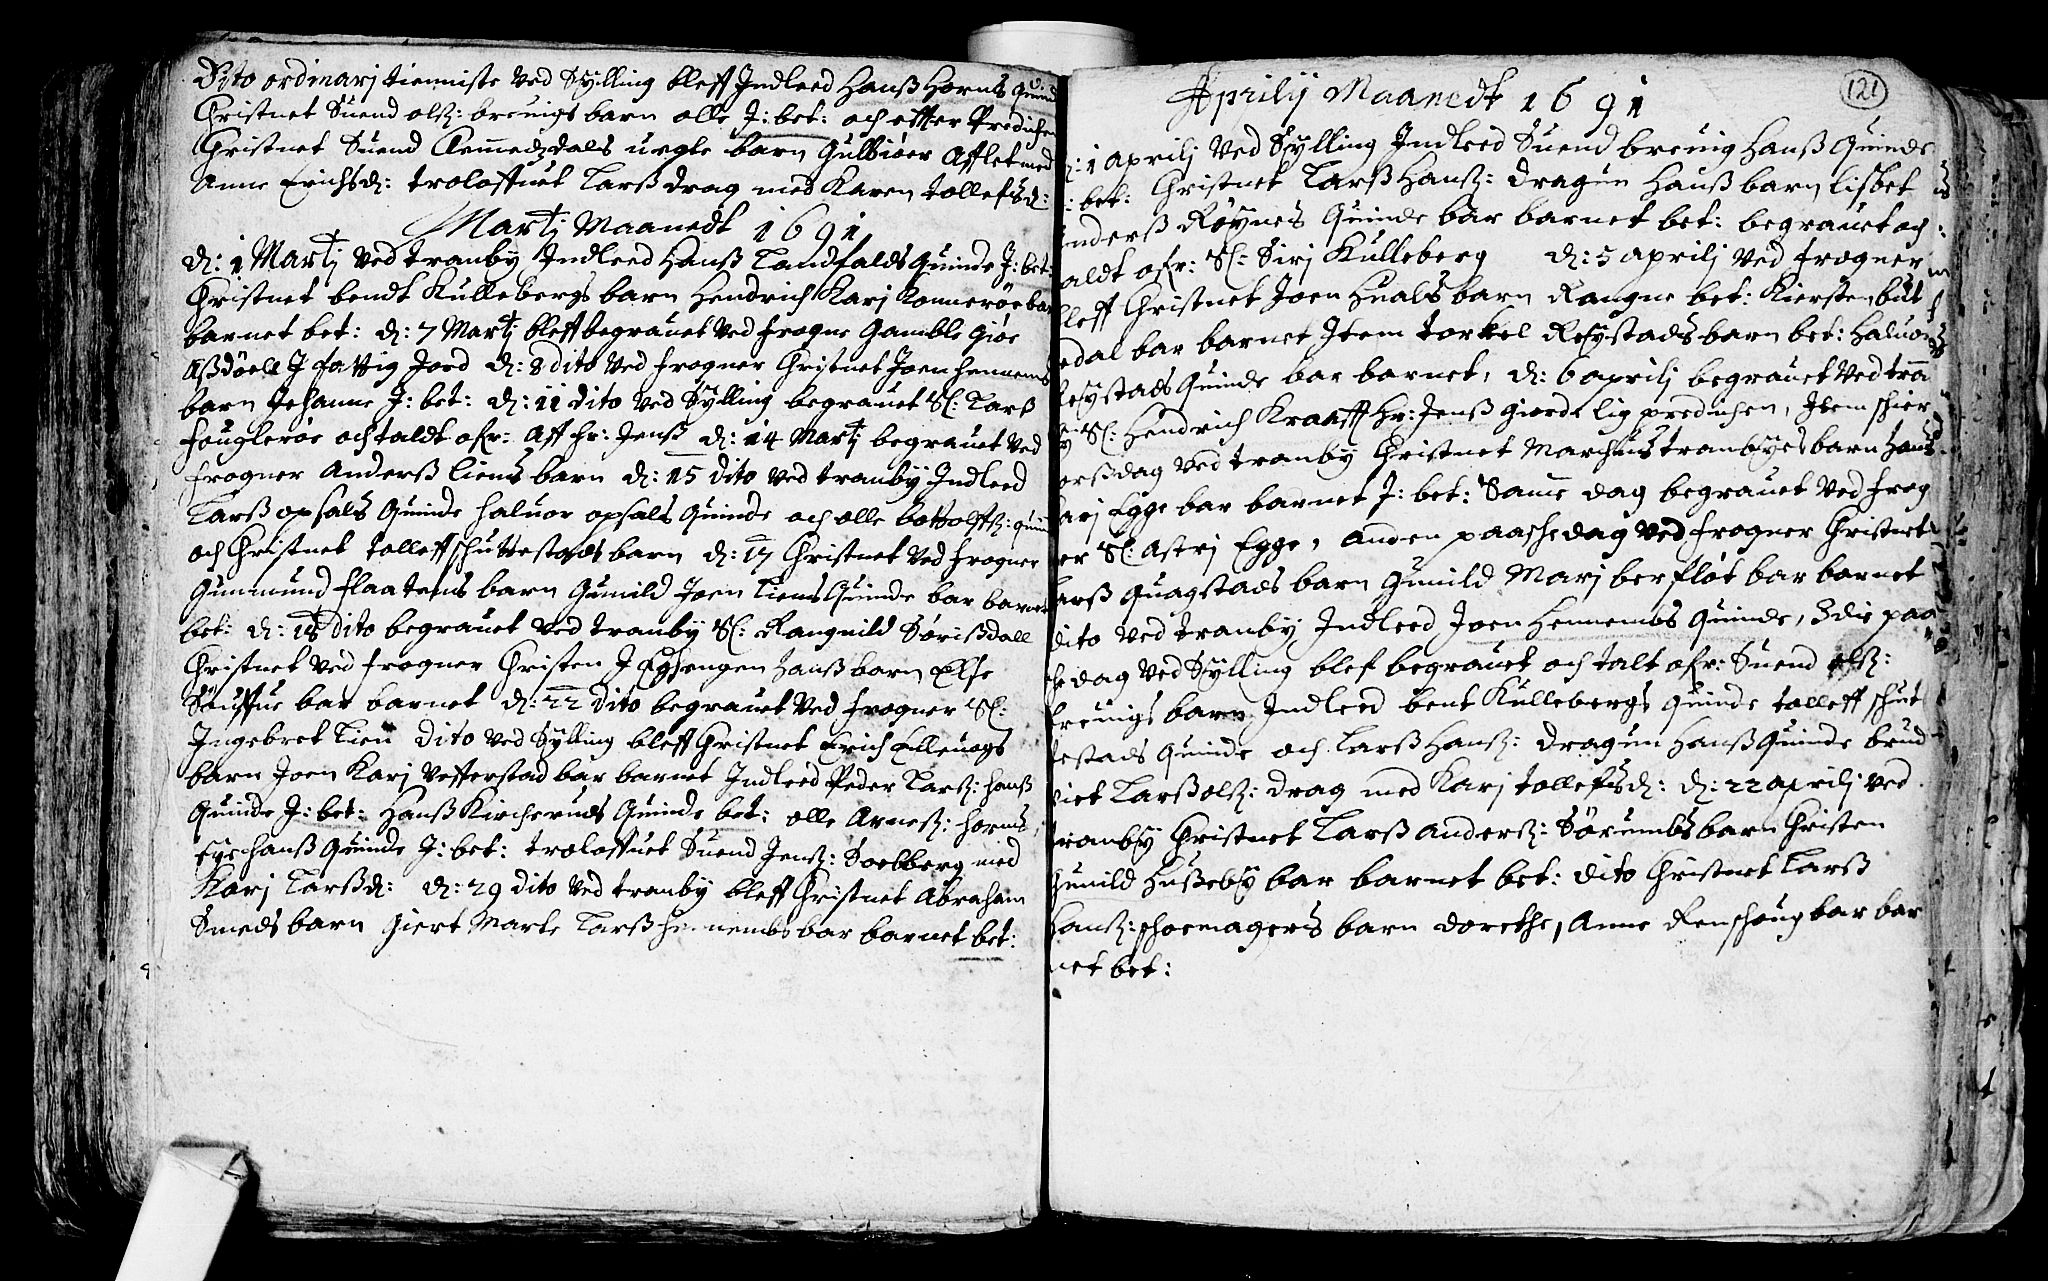 Dito ordinarj tienniste Ved Sylling bleff Jndleed Hanß Horns quind
Christnet Suend olß: breuigs barn olle J: bet: och effter Predichen
Christnet Suend uegte barn Gulbiør Afflet med
Anne Erichsd: troloffuet Larß drag med Karen tollefsd:
Martj Maanedt 1691
d: 1 Martj Ved tranby Jndleed Hanß Landfalds Quinde J: bet:
Christnet bendt Kullebergs barn Hendrich Karj Konnerøe bar
barnet bet: d: 7 Martj bleff begrauet Ved frogne Gamble Giøe
Aßdøell J fattig Jord d: 8 dito Ved frogner Christnet Joen Hennems
barn Johanne J: bet: d: 11 dito Ved Sylling begrauet Sl: Larß
fouglerøe och taldt ofr: Aff hr: Jenß d: 14 Martj begrauet Ved
frogner Anderß liens barn d: 15 dito Ved tranby Jndleed
Larß opsals Quinde haluor opsals Quinde och olle botolffß: quind
och Christnet tolleff schuttestads barn d: 17 Christnet Ved frogner
Gunmund flaatens barn Gunild Joen Liens Quinde bar barnet
bet: d: 18 dito begrauet Ved tranby Sl: Rangnild Sørißdall
Christnet Ved frogner Christen J Eghengen hanß barn Else
Søuffue bar barnet d: 22 dito begrauet Ved frogner Sl:
Jngebret Lien dito Ved Sylling bleff Christnet Erich Elleuogs
barn Joen Karj Vefferstad bar barnet Jndleed Peder Larß: hanß
Quinde J: bet: Hanß Kircheruds Quinde bet: olle Arneß: horns
Eye hanß Quinde J: bet: troloffuet Suend Jenß: Soelberg med
Karj Larßd: d: 29 dito Ved tranby bleff Christnet Abraham
Smeds barn Giert Marte Larß hennembs bar barnet bet:
121
Aprilij Maanedt 1691
d: 1 aprilj Ved Sylling Jndleed Suend breuig Hanß Quinde
: bet: Christnet Larß Hanß: dragun Hanß barn lisbet
nderß Røynes Quinde bar barnet bet: begrauet och
taldt ofr: Sl: Sirj Kulleberg d: 5 aprilj Ved frogner
bleff Christnet Joen Huals barn Rangne bet: Kiersten but
edal bar barnet Jtem torkel Røystads barn bet: Haluor
Røystads Quinde bar barnet, d: 6 aprilj begrauet Ved tran
by Sl: Hendrich Kraafft Hr: Jenß giorde lig predichen, Jtem schier
torßdag Ved tranby Christnet Marchus tranbyes barn hans
arj Egge bar barnet J: bet: Same dag begrauet Ved frog
ner Sl: Asterj Egge, anden paasche dag Ved frogner Christnet
Larß Quagstads barn Gunild Marj berfløt bar barnet
dito Ved tranby Jndleed Joen Hennembs Quinde, 3die paa
sche dag Ved Sylling blef begrauet och talt ofr: Suend olß:
breuigs barn Jndleed bent Kullebergs Quinde tolleff schut
testads Quinde och Larß Hanß: dragun Hanß Quinde brud
viet Larß olß: drag med Karj tollefsd: d: 22 aprilj Ved
tranby Christnet Larß Anderß: Sørumbs barn Christen
Gunild Hußeby bar barnet bet: dito Christnet Larß
Hanß: schoemagers barn dorethe, Anne Renschoug bar bar
net bet: